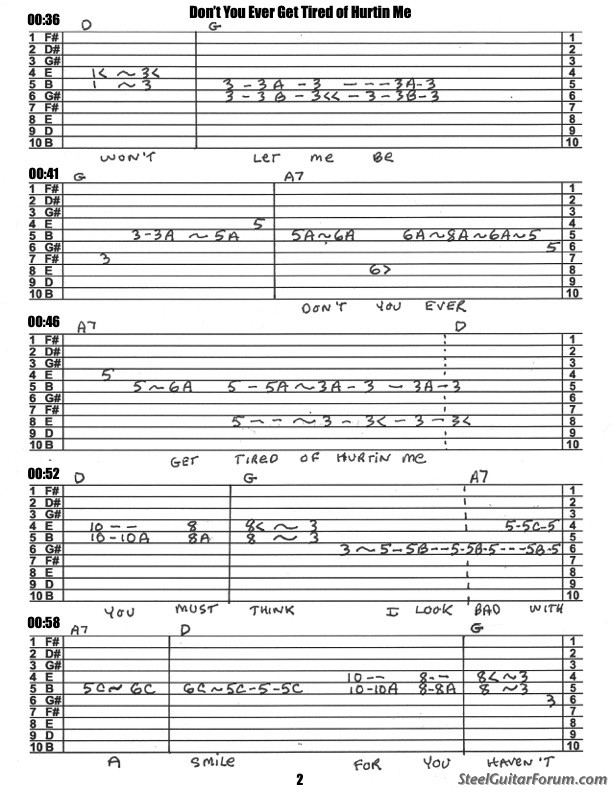 Don't You Ever Get Tired of Hurtin Me
00:36 D G
1 F# 1
2 D# 2
3 G# 3
4 E 1< ~ 3< 4
5 B 1 ~ 3 3 - 3A - 3 - - - 3A - 3 5
6 G# 3 - 3B - 3<< - 3 - 3B - 3 6
7 F# 7
8 E 8
9 D 9
10 B 10
WON'T LET ME BE
00:41 G A7
1 F# 1
2 D# 2
3 G# 3
4 E 5 4
5 B 3-3A ~ 5A 5A~6A 6A~8A~6A~5 5
6 G# 5 6
7 F# 3 7
8 E 6> 8
9 D 9
10 B 10
DON'T YOU EVER
00:46 A7 D
1 F# 1
2 D# 2
3 G# 3
4 E 5 4
5 B 5~6A 5 - 5A~3A - 3 - 3A-3 5
6 G# 6
7 F# 7
8 E 5 - - ~ 3 - 3< - 3 - 3< 8
9 D 9
10 B 10
GET TIRED OF HURTIN ME
00:52 D G A7
1 F# 1
2 D# 2
3 G# 3
4 E 10 - - 8 8< ~ 3 5-5C-5 4
5 B 10-10A 8A 8 ~ 3 5
6 G# 3 ~ 5-5B--5-5B-5---5B-5 6
7 F# 7
8 E 8
9 D 9
10 B 10
YOU MUST THINK I LOOK BAD WITH
00:58 A7 D G
1 F# 1
2 D# 2
3 G# 3
4 E 10 - - 8 - - 8<~3 4
5 B 5C~6C 6C~5C-5-5C 10-10A 8-8A 8 ~3 5
6 G# 3 6
7 F# 7
8 E 8
9 D 9
10 B 10
A SMILE FOR YOU HAVEN'T
2
SteelGuitarForum.com